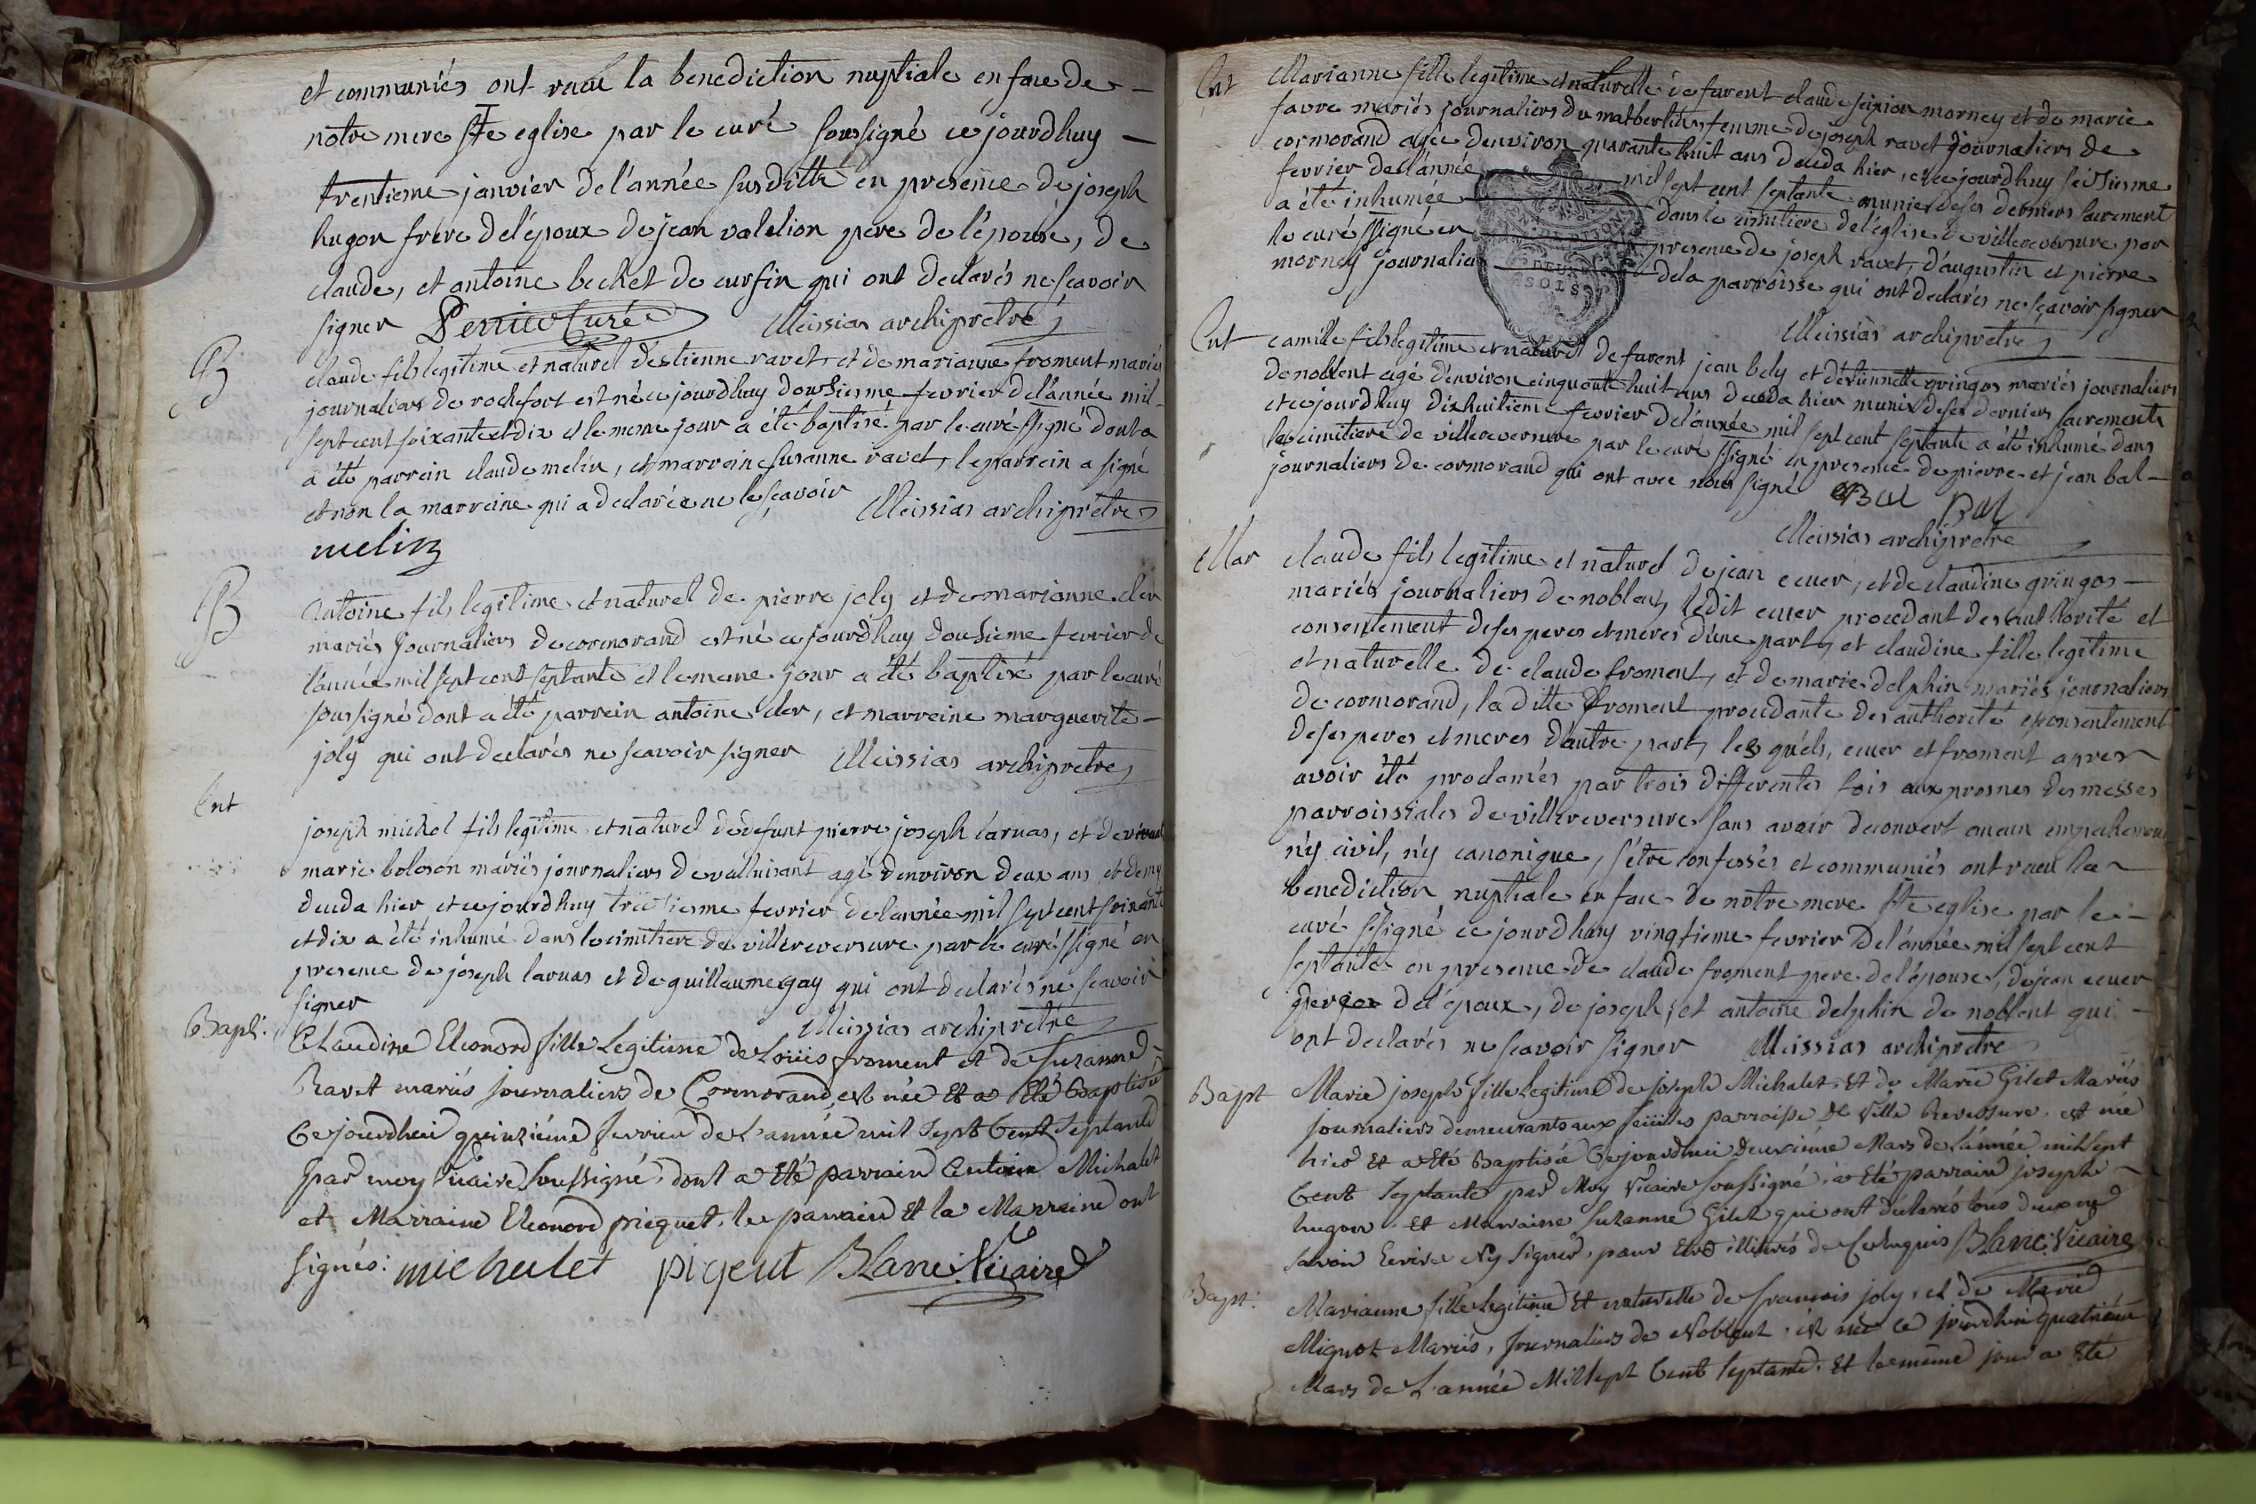 et communiés ont recu la benediction nuptiale en face de
notre mere Ste eglise par le curé soussigné ce jourdhuy
trentieme janvier de l'année susditte en presence de joseph
hugon frere de l'époux de jean valelion pere de l'épouse, de
claude, et antoine bechet de cursin qui ont declarés ne scavoir
signer Perrier Curé Meissias archipretre
B
claude fils legitime et naturel d'estienne ravet et de marianne froment mariés
journaliers de rochefort est né ce jourdhuy douzieme fevrier de l'année mil
sept cent soixante et dix et le meme jour a été baptisé par le curé ssigné dont a
a été parrein claude melin, et marreine susanne ravet, le parrein a signé
et non la marreine qui a declarée ne le scavoir Meissias archipretre
melin
B
Antoine fils legitime et naturel de pierre joly et de marianne cler
mariés journaliers de cormorand est né ce jourdhuy douzieme fevrier de
l'année mil sept cent septante et le meme jour a été baptisé par le curé
soussigné dont a été parrein antoine cler, et marreine marguerite
joly qui ont declarés ne scavoir signer Meissias archipretre
Ent
joseph michel fils legitime et naturel de defunt pierre joseph laruas, et de vivante
marie boloson mariés journaliers de valluisant agé d'environ deux ans et demy
deceda hier et ce jourdhuy treizieme fevrier de l'année mil sept cent soixante
et dix a été inhumé dans le cimitiere de villereversure par le curé ssigné en
presence de joseph laruas et de guillaume gay qui ont declarés ne scavoir
signer
Meissias archipretre
Bapt:
Claudine Eleonord fille Legitime de Loüis froment et de Suzanne
Ravet mariés journaliers de Cormorand est née Et a Eté Baptisée
Ce jourdhui quinziéme fevrier de L'année mil Sept Cent Septante
par moy Vicaire Soussigné, dont a Eté parrain Antoine Michalet
et Marraine Eleonord piequet. le parrain Et la Marraine ont
signés: michalet piqeut Blanc Vicaire
Ent
Marianne fille legitime et naturelle de furent claude sipion morney et de marie
favre mariés journaliers du matbertin, femme de joseph ravet journaliers de
cormorand agée d'environ quarante huit ans deceda hier, et ce jourdhuy seizieme
fevrier de l'année mil sept cent septante munie de ses derniers sacrement
a été inhumée dans le cimitiere de l'église de villereversure par
le curé ssigné en presence de joseph ravet, d'augustin et pierre
morney journaliers de la parroisse qui ont declarés ne scavoir signer
DEUX
SOLS
Meissias archipretre
Ent
camille fils legitime et naturel de furent jean bely et d'étiennette gringos mariés journaliers
de noblent agé d'environ cinquante huit ans deceda hier munis de ses derniers sacrements
et ce jourdhuy dixhuitieme fevrier de l'année mil sept cent septante a été inhumé dans
le cimitiere de villereversure par le curé ssigné en presence de pierre et jean bal
journaliers de cormorand qui ont avec nous signé Bal Bal
Meissias archipretre
Mar
claude fils legitime et naturel de jean ecuer, et de claudine gringos
mariés journaliers de noblent, ledit ecuer procedant des authorité et
consentement de ses peres et meres d'une part, et claudine fille legitime
et naturelle de claude froment, et de marie delphin mariés journaliers
de cormorand, la ditte froment procedante des authorité et consentement
de ses peres et meres d'autre part, lesquels, ecuer et froment apres
avoir été proclamés par trois differentes fois aux prosnes des messes
parroissiales de villereversure sans avoir decouvert aucun empechement
n'y civil, n'y canonique, s'etre confessés et communiés ont recu la
benediction nuptiale en face de notre mere Ste eglise par le
curé ssigné ce jourdhuy vingtieme fevrier de l'année mil sept cent
septante en presence de claude froment pere de l'épouse, de jean ecuer
de l'époux, de joseph, et antoine delphin de noblent qui
ont declarés ne scavoir signer Meissias archipretre
Bapt
Marie joseph fille Legitime de joseph Michalet, Et de Marie Gilet Mariés
journaliers demeurants aux feuilles parroisse de Ville Reversure, est née
hier Et a Eté Baptisée Ce jourdhui deuxiéme Mars de L'année mil Sept
Cent Septante par Moy Vicaire soussigné, a Eté parrain joseph
hugon. Et Marraine Suzanne Gilet qui ont déclarés tous deux ne
savoir Ecrire Ny signer, pour Etre illitérés de Ce Requis Blanc Vicaire
Bapt:
Marianne fille Legitime Et naturelle de francois joly, et de Marie
Mignot Mariés, journaliers de Noblent, est née ce jourdhui quatriéme
Mars de L'année Mil Sept Cent Septante. Et le même jour a Eté